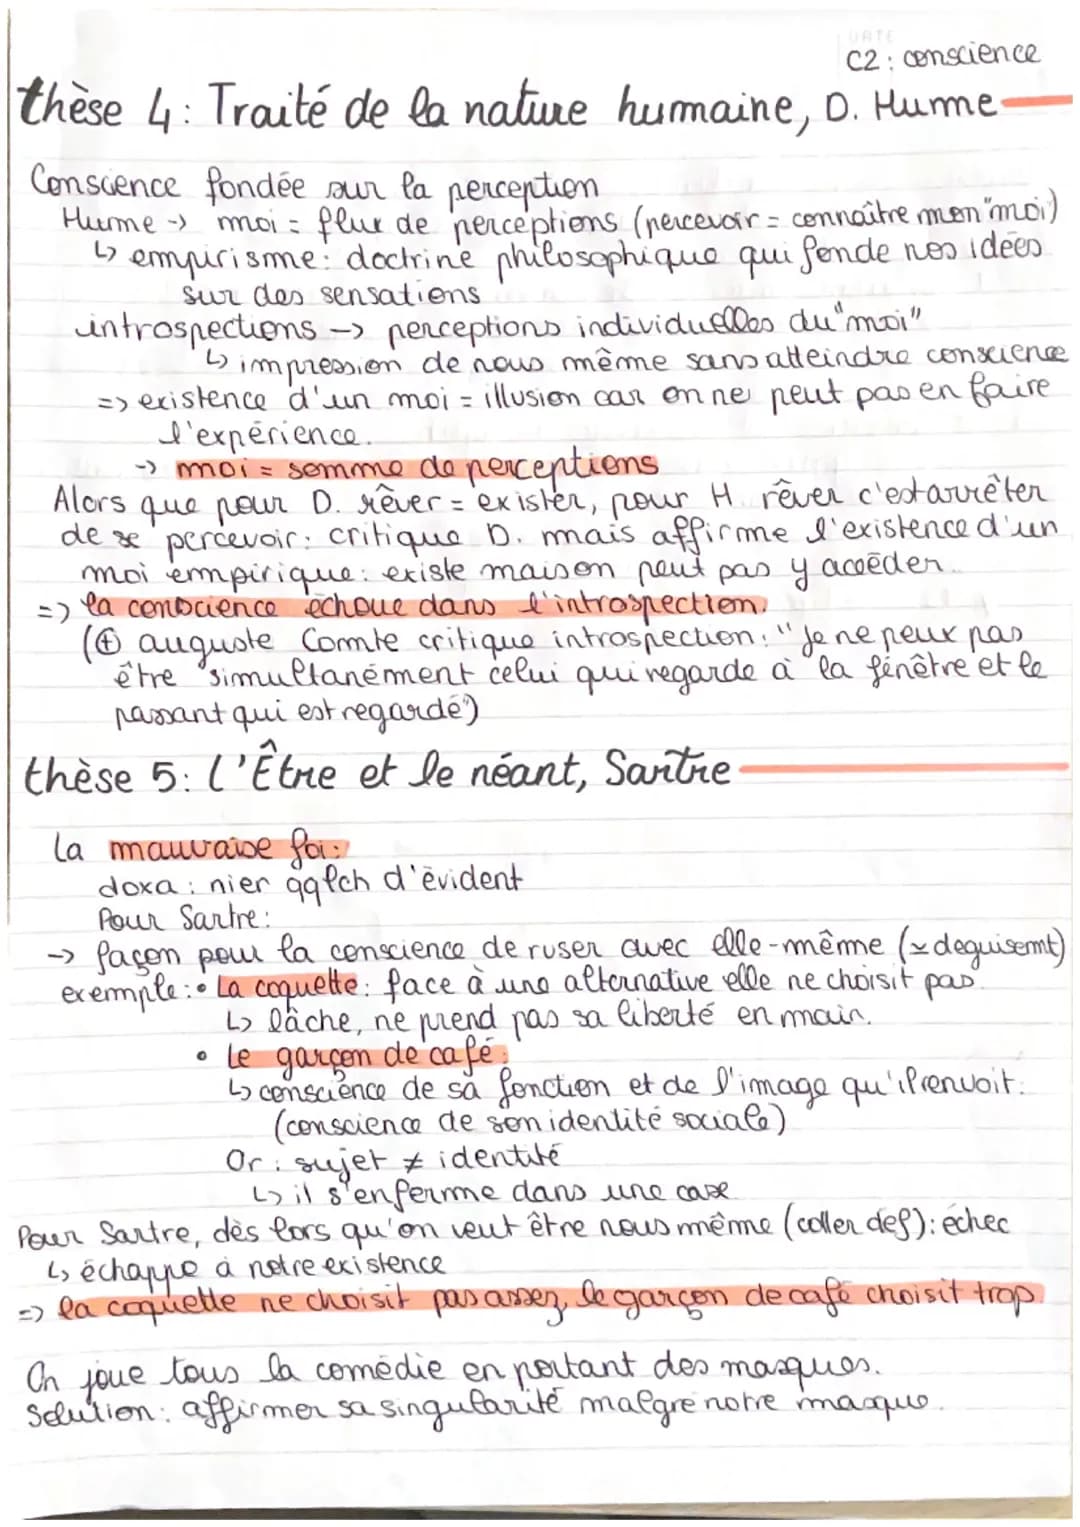 DATE
C2 : conscience
thèse 4 : Traité de la nature humaine, D. Hume
Conscience fondée sur la perception
Hume -> moi = flux de perceptions (percevoir = connaître mon "moi")
↳ empirisme : doctrine philosophique qui fonde nos idées
sur des sensations
introspections -> perceptions individuelles du "moi"
↳ impression de nous même sans atteindre conscience
=> existence d'un moi = illusion car on ne peut pas en faire
l'expérience.
-> moi = somme de perceptions
Alors que pour D. rêver = exister, pour H. rêver c'est arrêter
de se percevoir : critique D. mais affirme l'existence d'un
moi empirique : existe mais on peut pas y accéder.
=> la conscience échoue dans l'introspection.
(⊕ auguste Comte critique introspection : "je ne peux pas
être simultanément celui qui regarde à la fenêtre et le
passant qui est regardé")
thèse 5 : l'Être et le néant, Sartre
la mauvaise foi :
doxa : nier qqlch d'évident
Pour Sartre :
-> façon pour la conscience de ruser avec elle-même (≃ deguisemt)
exemple : • La coquette : face à une alternative elle ne choisit pas.
↳ lâche, ne prend pas sa liberté en main.
• Le garçon de café :
↳ conscience de sa fonction et de l'image qu'il renvoit :
(conscience de son identité sociale)
Or : sujet ≠ identité
↳ il s'enferme dans une case
Pour Sartre, dès lors qu'on veut être nous même (coller def) : échec
↳ échappe à notre existence
=> la coquette ne choisit pas assez, le garçon de café choisit trop.
On joue tous la comédie en portant des masques.
Solution : affirmer sa singularité malgré notre masque.